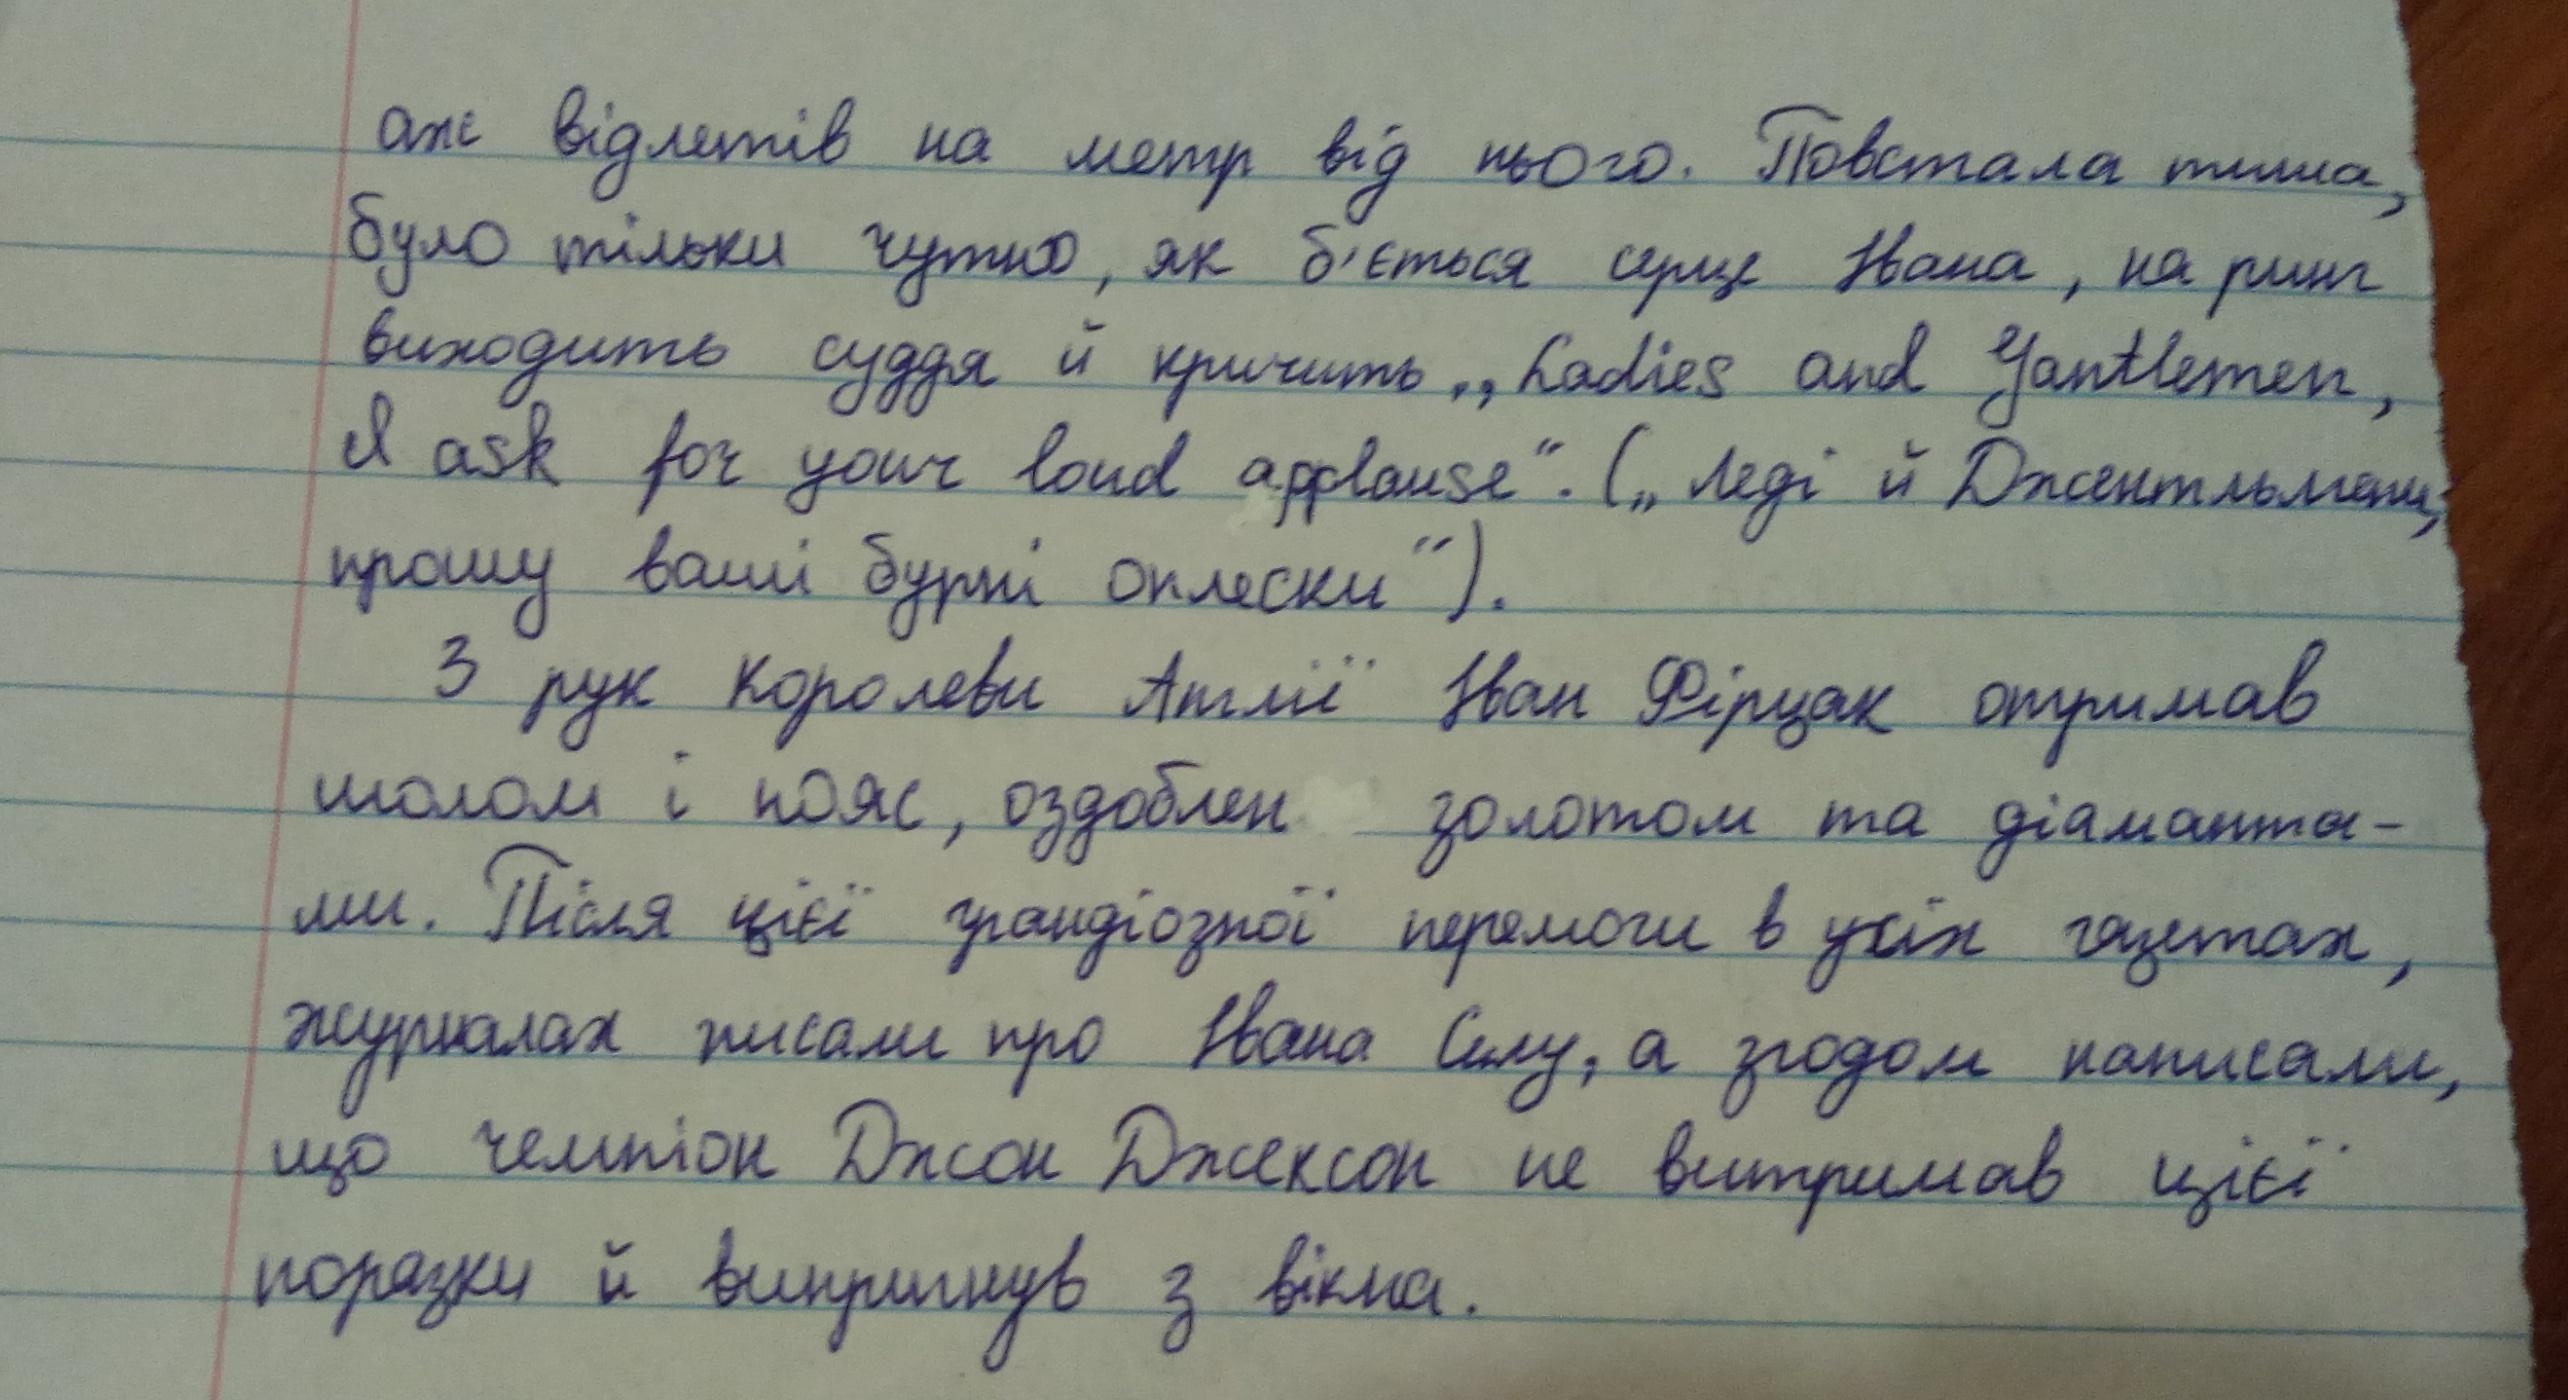 аж відлетів на метр від нього. Повстала тиша,
було тільки чутно, як б'ється серце Івана, на ринг
виходить суддя й кричить „Ladies and Gantlemen,
I ask for your loud applause“. („Леді й Джентльмени,
прошу ваші бурні оплески“).
З рук королеви Англії Іван Фірцак отримав
шолом і пояс, оздоблен золотом та діаманта-
ми. Після цієї грандіозної перемоги в усіх газетах,
журналах писали про Івана Силу, а згодом написали,
що чемпіон Джон Джексон не витримав цієї
поразки й випригнув з вікна.